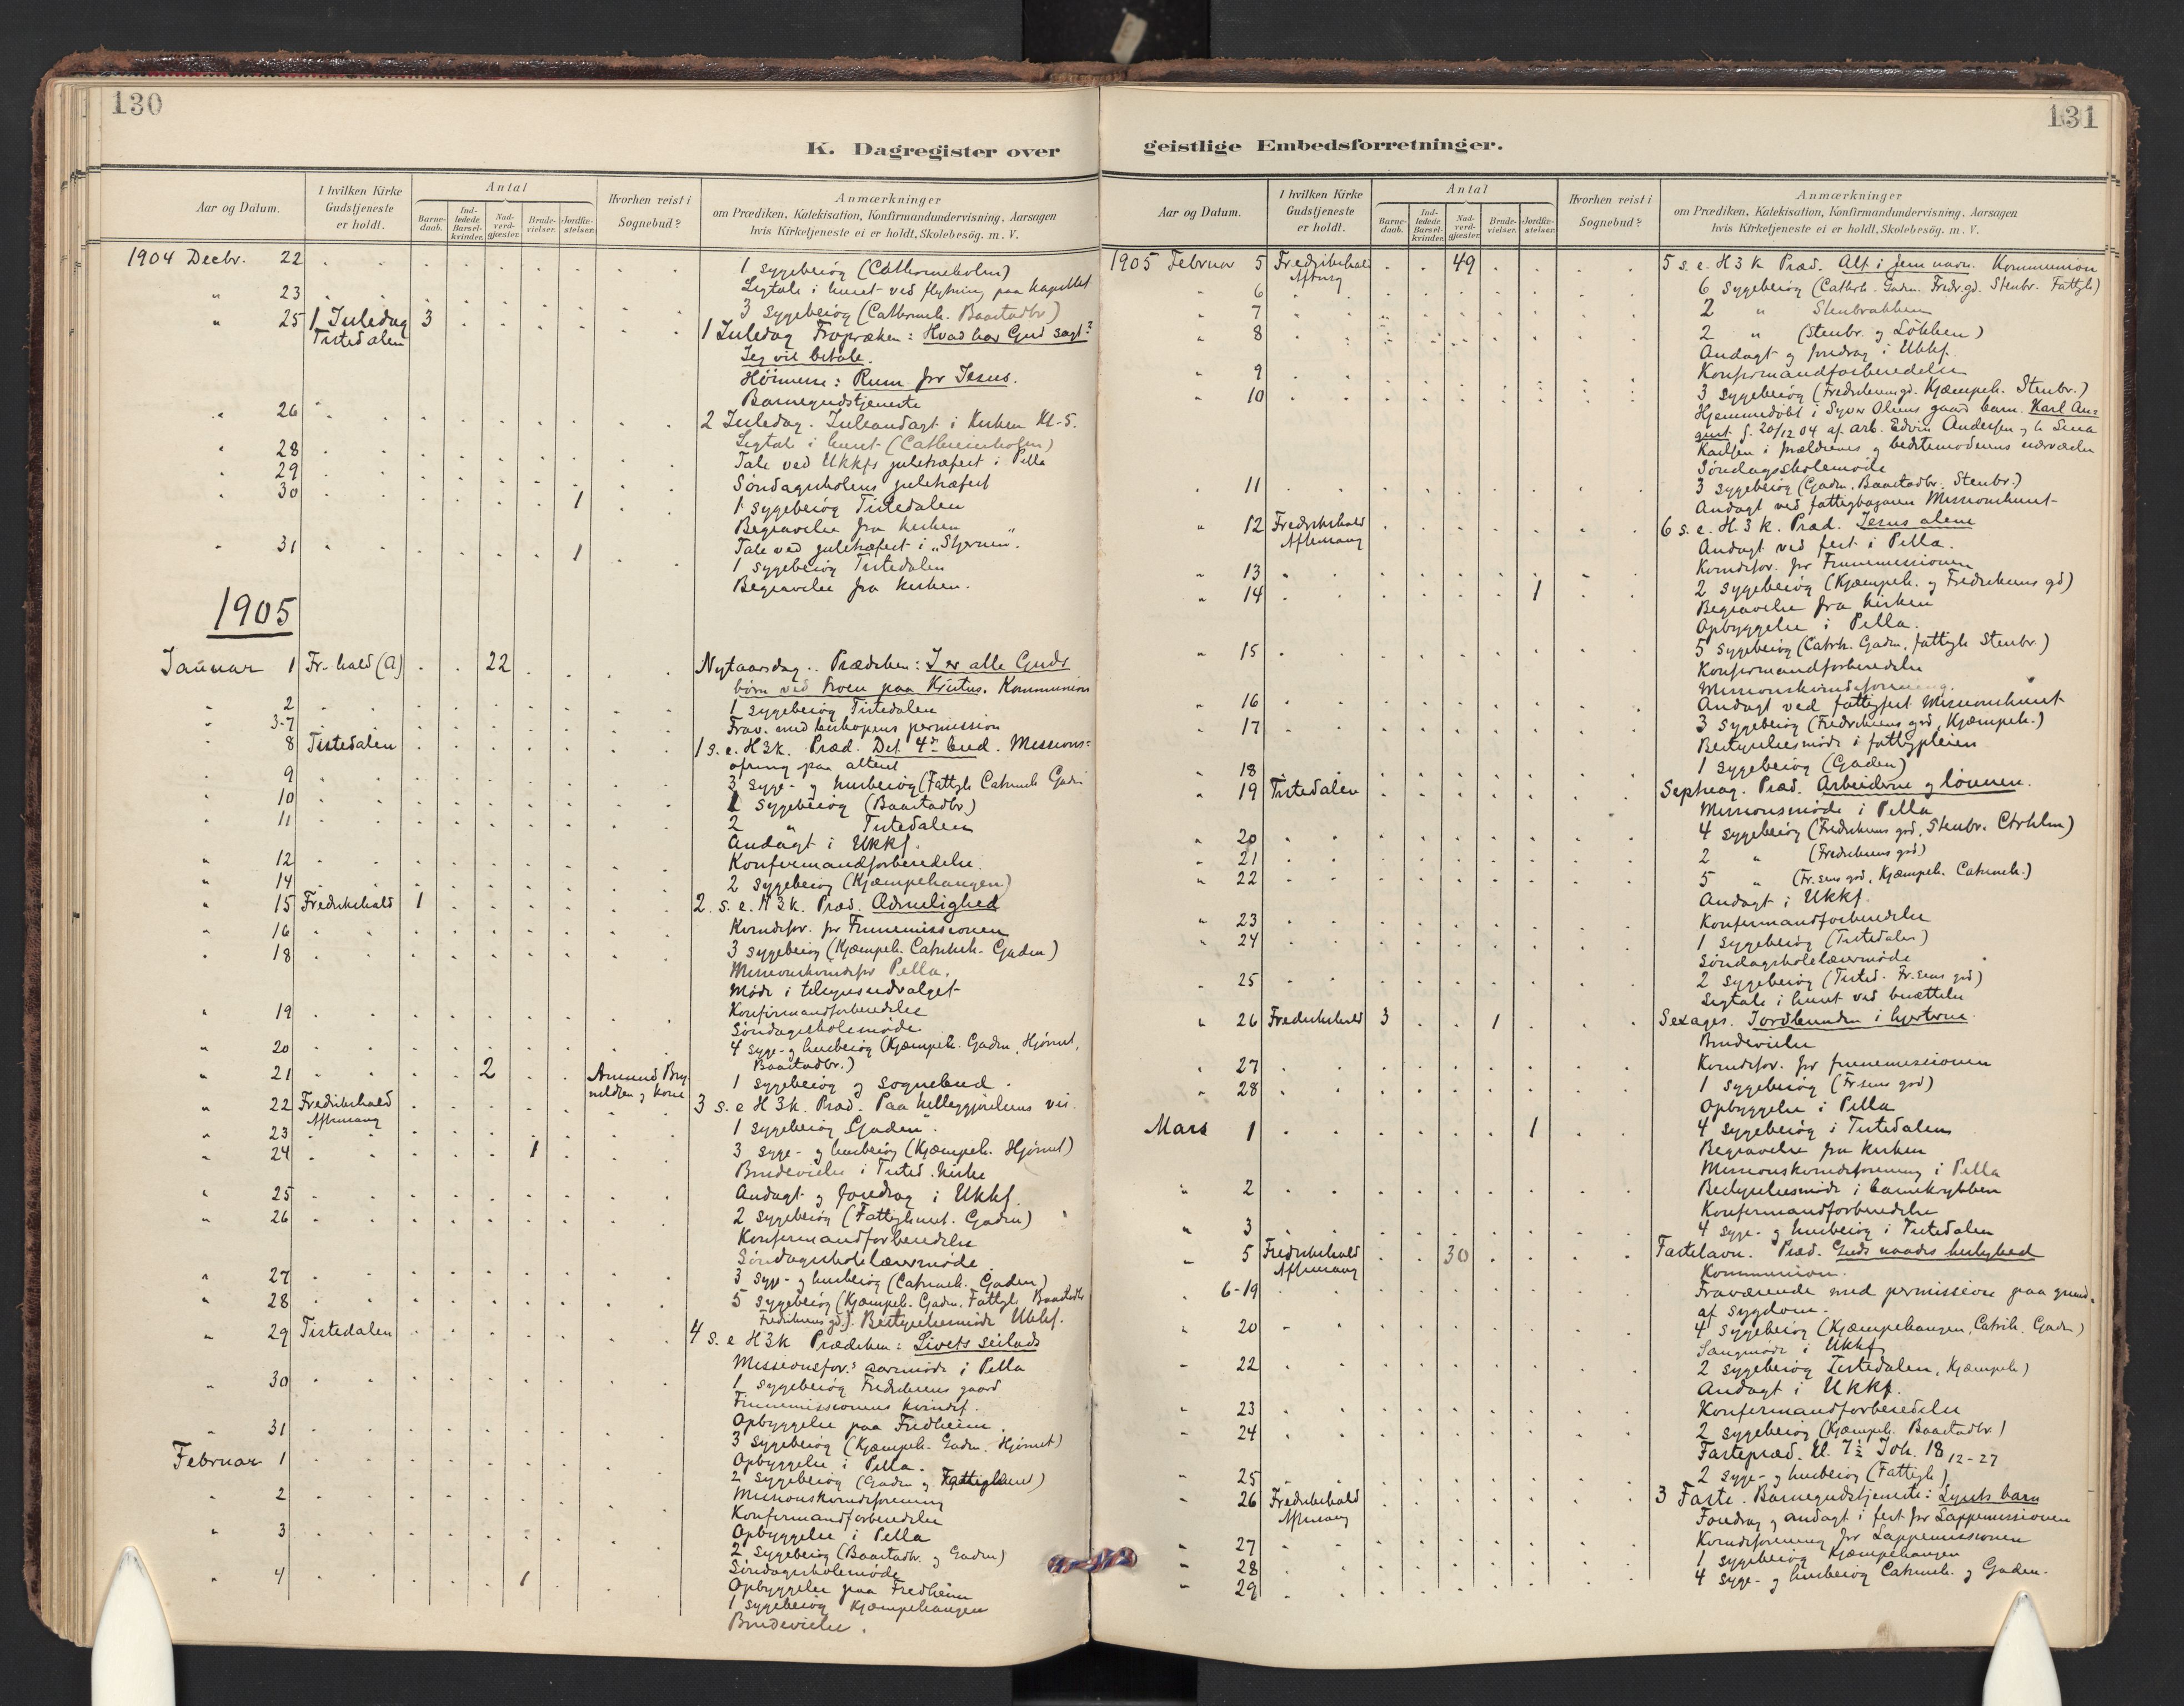 130
K. Dagregister over
Aar og Datum.
I hvilken Kirke Gudstjeneste er holdt.
Antal
Barne-daab.
Ind-ledede Barsel-kvinder.
Nad-verd-gjæster.
Brude-vielser.
Jordfæ-stelser.
Hvorhen reist i Sognebud?
Anmærkninger
om Prædiken, Katekisation, Konfirmandundervisning, Aarsagen
hvis Kirketjeneste ei er holdt, Skolebesög. m. V.
1904 Decbr. 22 1 sygebesög (Cathrineholm)
Ligtale i huset ved flytning paa kapellet
" 23 3 sygebesög (Cathrineh. Baastadbr)
" 25 1 Juledag Tistedalen 3 1 Juledag Fropræken: Hvad har Gud sagt?
Jeg vil betale.
Höimesse: Rum for Jesus.
Barnegudstjeneste
" 26 2 Juledag. Juleandagt i Kirken Kl. 5.
Ligtale i huset (Cathrineholm)
" 28 Tale ved Ukkfs juletræfest i Pella
" 29 Söndagsskolens juletræfest
" 30 1 1 sygebesög Tistedalen
Begravelse fra kirken
" 31 1 Tale ved juletræfest i "Stjernen".
1 sygebesög Tistedalen
Begravelse fra kirken.
1905
Januar 1 Fr.hald (A) 22 Nytaarsdag. Prædiken: I er alle Guds
börn ved troen paa Kristus. Kommunion
" 2 1 sygebesög Tistedalen
" 3-7 Frav. med biskopens permission
" 8 Tistedalen 1 s. e. H3k. Præd. Det 4de bud. Missions-
ofring paa alteret
" 9 3 syge- og husbesög (Fattigh. Cathrineh. Gaden
" 10 1 sygebesög (Baastadbr)
" 11 2 " Tistedalen
Andagt i Ukkf.
" 12 Konfirmandforberedelse.
" 14 2 sygebesög (Kjæmpehaugen)
" 15 Fredrikshald 1 2. s. e. H3k. Præd. Ædruelighed
" 16 Kvindefor. for Finnemissionen
" 18 3 sygebesög (Kjæmpeh. Cathrineh. Gaden)
Missionskvindefor Pella.
Möde i tilsynsudvalget
" 19 Konfirmandforberedelse
Söndagsskolemöde
" 20 4 syge- og husbesög (Kjæmpeh. Gaden, Hjörnet,
Baastadbr.)
" 21 2 Amund Bry-
nildsen og kone 1 sygebesög og sognebud.
" 22 Fredrikshald Aftensang 3 s. e H3k. Præd. Paa helliggjörelsens vei.
" 23 1 sygebesög Gaden
" 24 1 3 syge- og husbesög (Kjæmpeh. Hjörnet)
Brudevielse i Tisted. kirke
" 25 Andagt og foredrag i Ukkf.
" 26 2 sygebesög (Fattighuset. Gaden)
Konfirmandforberedelse
Söndagsskolelærermöde
" 27 3 syge- og husbesög (Cathrineh. Gaden)
" 28 5 sygebesög (Kjæmpeh. Gaden. Fattigh. Baastadbr
Fredriksens gd.). Bestyrelsesmöde Ukkf.
" 29 Tistedalen 4 s. e H3k Prædiken: Livets seilads
Missionsfor.s aarsmöde i Pella
" 30 1 sygebesög Fredriksens gaard
Finnemissionens kvindef.
Opbyggelse paa Fredheim
" 31 3 sygebesög (Kjæmpeh. Gaden. Hjörnet)
Opbyggelse i Pella.
Februar 1 2 sygebesög (Gaden og Fattighuset)
Missionskvindeforening
" 2 Konfirmandforberedelse
Opbyggelse i Pella
" 3 2 sygebesög (Baastadbr. og Gaden)
Söndagsskolemöde
" 4 1 Opbyggelse paa Fredheim
1 sygebesög Kjæmpehaugen
Brudevielse.
131
geistlige Embedsforretninger.
Aar og Datum.
I hvilken Kirke Gudstjeneste er holdt.
Antal
Barne-daab.
Ind-ledede Barsel-kvinder.
Nad-verd-gjæster.
Brude-vielser.
Jordfæ-stelser.
Hvorhen reist i Sognebud?
Anmærkninger
om Prædiken, Katekisation, Konfirmandundervisning, Aarsagen
hvis Kirketjeneste ei er holdt, Skolebesög. m. V.
1905 Februar 5 Fredrikshald Aftsang 49 5 s. e. H3k Præd. Alt i Jesu navn. Kommunion
" 6 6 sygebesög (Cathrh. Gaden. Fredr.gd. Stenbr. Fattigh)
" 7 2 " Stenbrækken
" 8 2 " (Stenbr. og Lökken)
Andagt og foredrag i Ukkf.
" 9 Konfirmandforberedelse
" 10 3 sygebesög (Fredriksensgd. Kjæmpeh. Stenbr.)
Hjemmedöbt i Syver Olsens gaard barn. Karl Au-
gust f. 20/12 04 af arb. Edvin Andersen og h. Lina
Karlsen i forældrenes og bedstemoderens nærværelse
Söndagsskolemöde
" 11 3 sygebesög (Gaden, Baastadbr. Stenbr.)
Andagt ved fattigbasaren Missionshuset
" 12 Fredrikshald Aftensang 6 s. e. H3k. Præd. Jesus alene
Andagt ved fest i Pella.
" 13 Kvindefor. for Finnemissionen
" 14 1 2 sygebesög (Kjæmpeh. og Fredriksens gd)
Begravelse fra kirken
Opbyggelse i Pella.
" 15 5 sygebesög (Cathrh. Gaden, fattigh Stenbr.)
Konfirmandforberedelse
Missionskvindeforening.
" 16 Andagt ved fattigfest Missionshuset
" 17 3 sygebesög (Fredriksens grd, Kjæmpeh.)
Bestyrelsesmöde i fattigpleien
" 18 1 sygebesög (Gaden)
" 19 Tistedalen Septuag. Præd. Arbeiderne og lönnen.
Missionsmöde i Pella
" 20 4 sygebesög (Fredriksens grd, Stenbr. Ctrhlm)
" 21 2 " (Fredriksens grd)
" 22 5 " (Fr.sens grd, Kjæmpeh. Cathrineh.)
Andagt i Ukkf.
" 23 Konfirmandforberedelse
" 24 1 sygebesög (Tistedalen)
Söndagsskolelærermöde
" 25 2 sygebesög (Tisted. Fr.sens grd)
Ligtale i huset ved bisættelse
" 26 Fredrikshald 3 1 Sexages. Jordbunden i hjerterne.
Brudevielse
" 27 Kvindefor. for finnemissionen
" 28 1 sygebesög (Fr.sens grd)
Opbyggelse i Pella
Mars 1 1 4 sygebesög i Tistedalen
Begravelse fra kirken
Missionskvindeforening i Pella
" 2 Bestyrelsesmöde i barnekrybben
Konfirmandforberedelse
" 3 4 syge- og husbesög i Tistedalen
" 5 Fredrikshald Aftensang 30 Fastelavn. Præd. Guds naades herlighed
Kommunion.
" 6-19 Fraværende med permission paa grund
af sygdom.
" 20 4 sygebesög (Kjæmpehaugen, Cathrh. Gaden)
Sangmöde i Ukkf
" 22 2 sygebesög Tistedalen, Kjæmpeh)
Andagt i Ukkf.
" 23 Konfirmandforberedelse
" 24 2 sygebesög (Kjæmpeh. Baastadbr.)
Fastepræd. Kl. 7½ Joh. 18 12-27
" 25 2 syge- og husbesög (Fattigh)
" 26 Fredrikshald Aftensang 3 Faste. Barnegudstjeneste: Lysets barn
Foredrag og andagt i fest for Lappemissionen
" 27 Kvindeforening for Lappemissionen
" 28 1 sygebesög Kjæmpehaugen
" 29 4 syge- og husbesög Cathrineh. og Gaden.